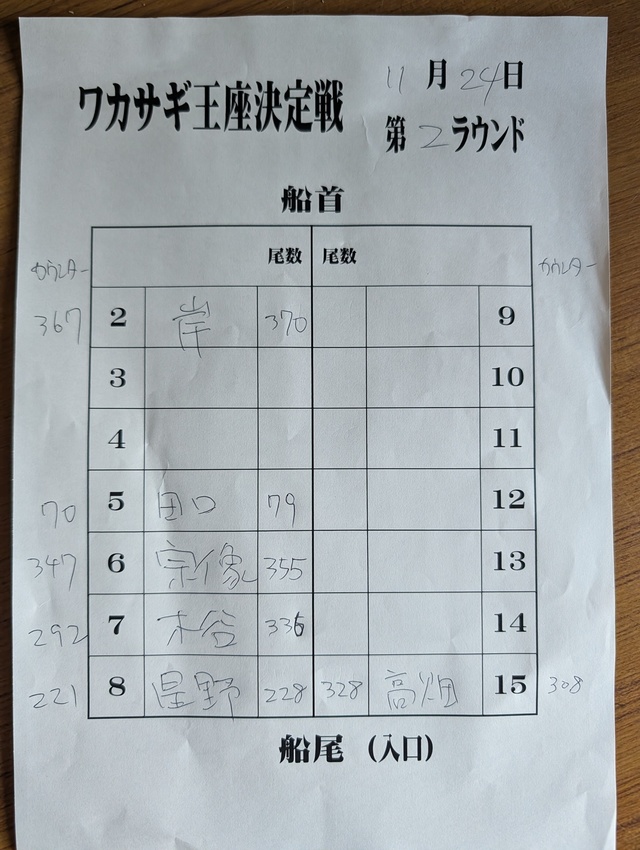 ワカサギ王座決定戦
11月24日
第2ラウンド
船首
カウンター 尾数 尾数 カウンター
367 2 岸 370 9
3 10
4 11
70 5 田口 79 12
347 6 宗像 355 13
292 7 木谷 336 14
221 8 星野 228 328 高畑 15 308
船尾 (入口)